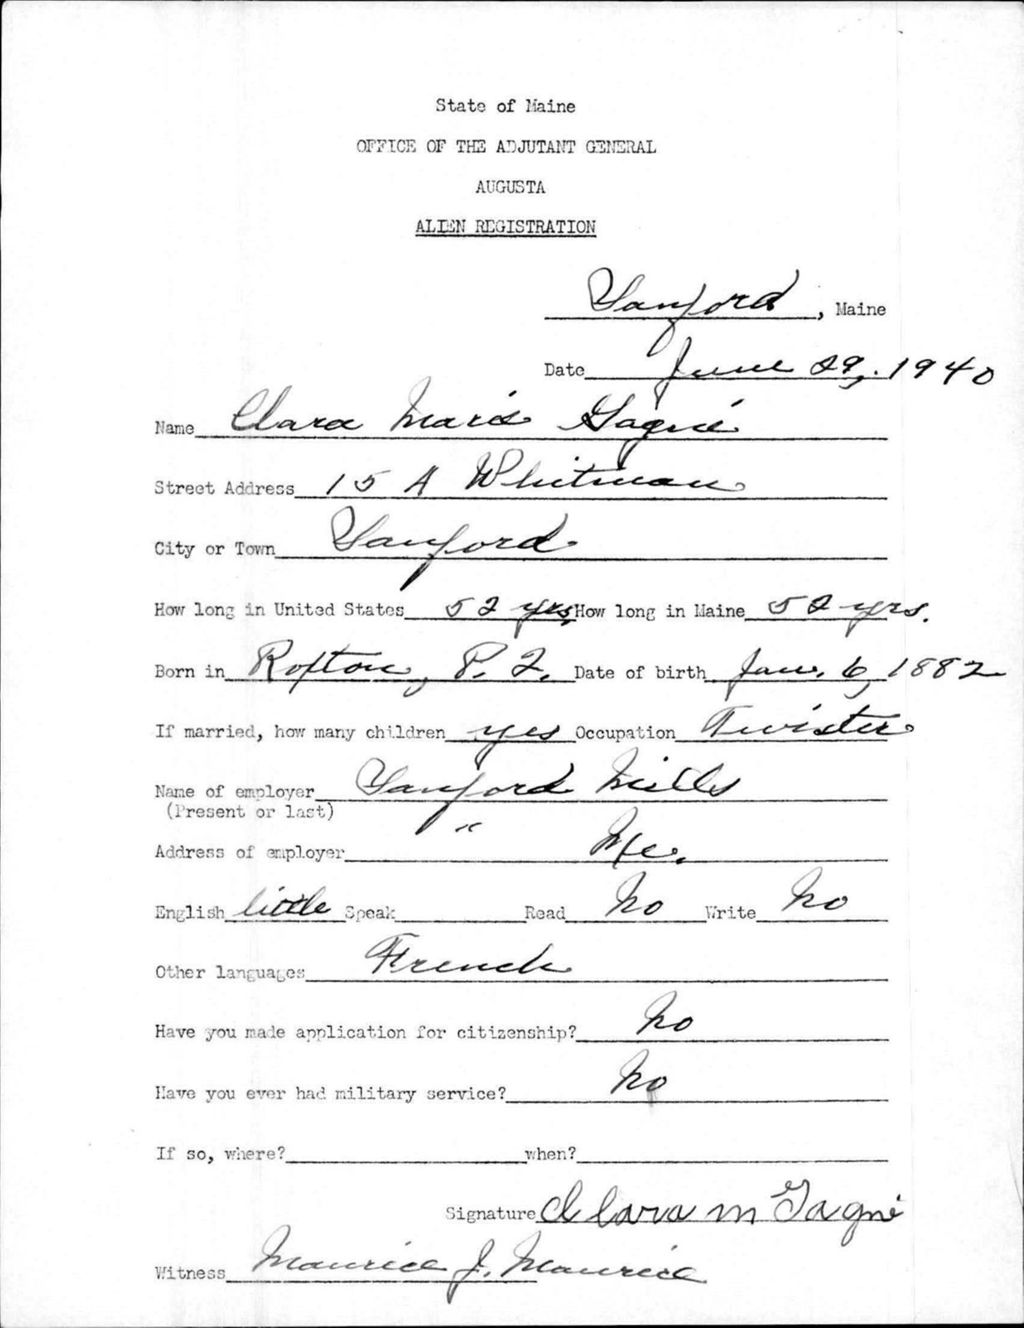 State of Maine
OFFICE OF THE ADJUTANT GENERAL
AUGUSTA
ALIEN REGISTRATION
Sanford, Maine
Date June 29, 1940
Name Clara Marie Gagné
Street Address 15 A Whitman
City or Town Sanford
How long in United States 52 yrs. How long in Maine 52 yrs.
Born in Roxton, P. Q. Date of birth Jan. 6, 1882
If married, how many children yes Occupation Twister
Name of employer Sanford Mills
(Present or last)
Address of employer " Me.
English little Speak Read No Write No
Other languages French
Have you made application for citizenship? No
Have you ever had military service? No
If so, where? when?
Signature Clara M Gagné
Witness Maurice J. Maurice